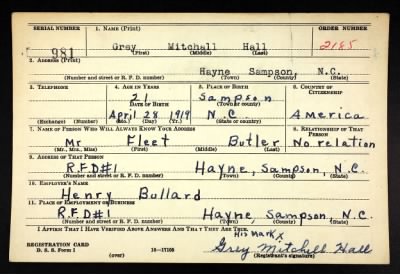 SERIAL NUMBER 1. NAME (Print) ORDER NUMBER
981 Grey Mitchall Hall 2185
(First) (Middle) (Last)
2. ADDRESS (Print)
Hayne Sampson, N.C.
(Number and street or R. F. D. number) (Town) (County) (State)
3. TELEPHONE 4. AGE IN YEARS 5. PLACE OF BIRTH 6. COUNTRY OF CITIZENSHIP
21 Sampson
DATE OF BIRTH (Town or county)
April 28 1919 N.C. America
(Exchange) (Number) (Mo.) (Day) (Yr.) (State or country)
7. NAME OF PERSON WHO WILL ALWAYS KNOW YOUR ADDRESS 8. RELATIONSHIP OF THAT PERSON
Mr Fleet Butler No relation
(Mr., Mrs., Miss) (First) (Middle) (Last)
9. ADDRESS OF THAT PERSON
R.F.D#1 Hayne, Sampson, N.C.
(Number and street or R. F. D. number) (Town) (County) (State)
10. EMPLOYER'S NAME
Henry Bullard
11. PLACE OF EMPLOYMENT OR BUSINESS
R.F.D#1 Hayne, Sampson, N.C.
(Number and street or R. F. D. number) (Town) (County) (State)
I AFFIRM THAT I HAVE VERIFIED ABOVE ANSWERS AND THAT THEY ARE TRUE.
His Mark X
REGISTRATION CARD Grey Mitchell Hall
D. S. S. Form 1 16—17105 (Registrant's signature)
(over)